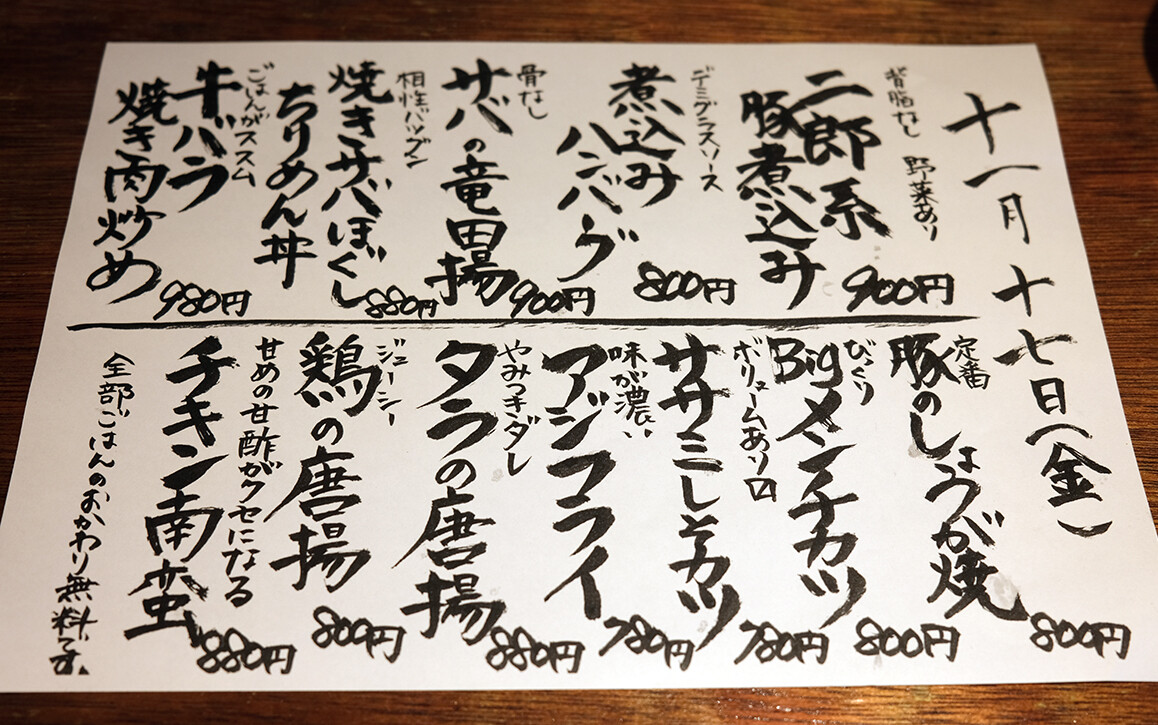 十一月十七日(金)
背脂なし 野菜あり
二郎系
豚煮込み
900円
デミグラスソース
煮込み
ハンバーグ
800円
骨なし
サバの竜田揚
900円
相性バツグン
焼きサバほぐし
ちりめん丼
880円
ごはんがススム
牛バラ
焼き肉炒め
980円
定番
豚のしょうが焼
800円
びっくり
Bigメンチカツ
800円
ボリュームあり〼
ササミしそカツ
780円
味が濃い
アジフライ
780円
やみつきダレ
タラの唐揚
880円
ジューシー
鶏の唐揚
800円
甘めの甘酢がクセになる
チキン南蛮
880円
全部ごはんのおかわり無料です。